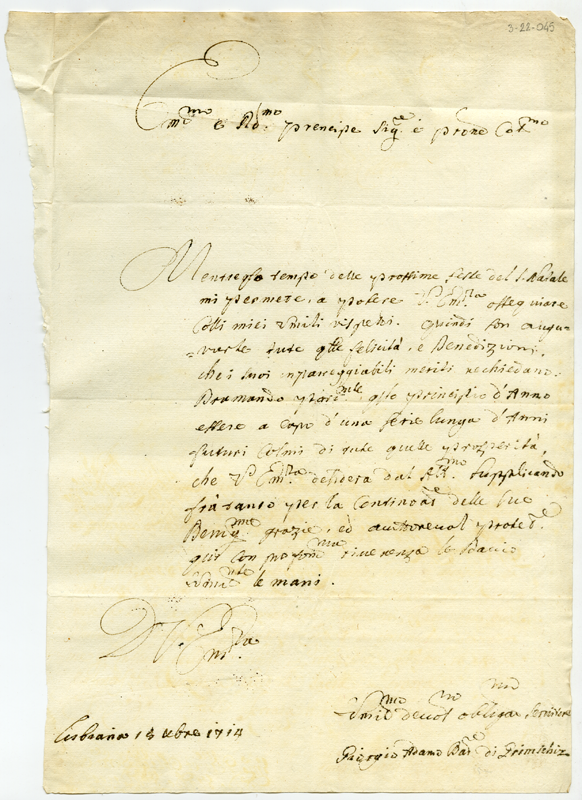 3-22-045
Em.mo e Re.mo Prencipe Sig.e é Prone Col.mo
Mentre q̃sto tempo delle prossime feste del S. Natale
mi permete, a potere V.a Em.za ossequiare
colli miei umili rispetti. Quindi son augu-
-rarle tute q̃lle felicità, e Benedizioni,
che i suoi inpareggiabili meriti richiedano.
Bramando q̃sto principio d'Anno
essere a capo d'una serie lunga d'Anni
futuri colmi di tute quelle prosperità,
che V.a Em.za desidera dal Supplicando
frà tanto per la Continoãe delle sue
Benig.me grazie, ed autorevol protez.e
con profon.ma riverenza le Bacio
le mani.
D V. Em.za
Lubiana 18 Xbre 1714
Umil.mo devot.mo obliga.mo Servitore
Giorgio Adamo Bar.e di Grimschiz